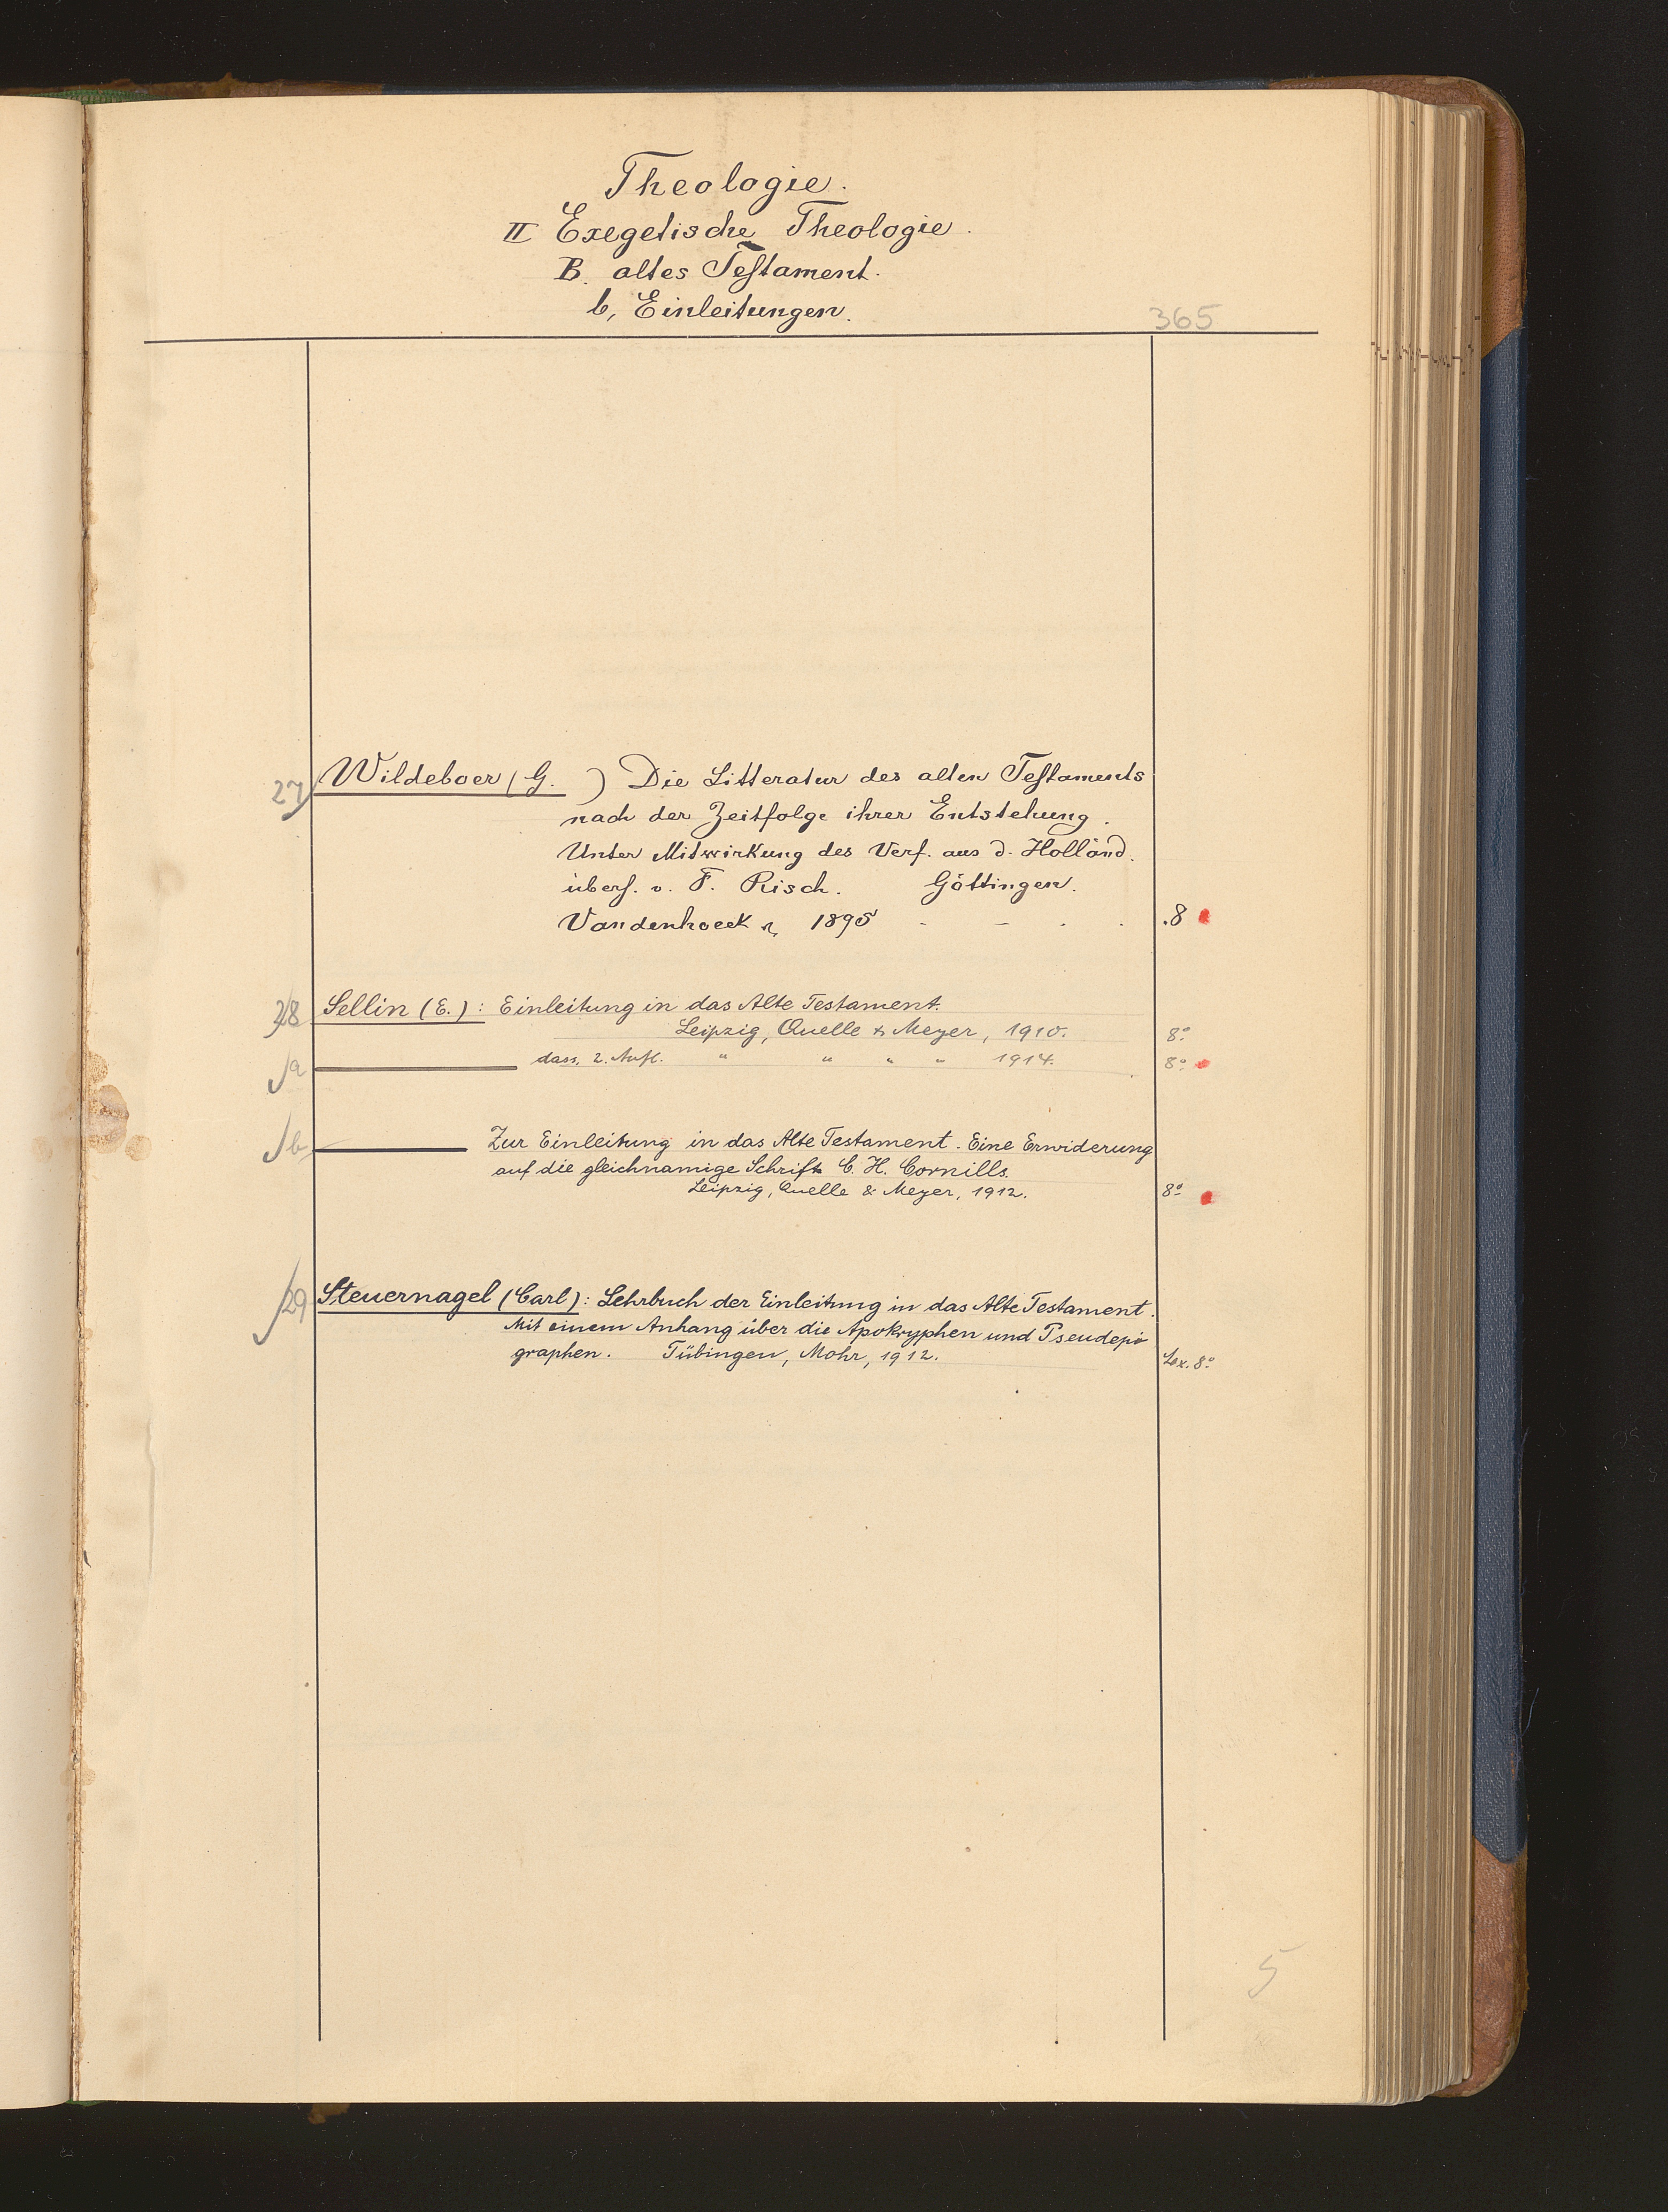 Theologie.
II Exegetische Theologie.
B. altes Testament.
b, Einleitungen.
365
27 Wildeboer (G. ) Die Litteratur des alten Testaments
nach der Zeitfolge ihrer Entstehung.
Unter Mitwirkung des Verf. aus d. Holländ.
übers. v. F. Risch. Göttingen.
Vandenhoeck 1895 - - . . .8
28 Sellin (E.): Einleitung in das Alte Testament.
Leipzig, Quelle & Meyer, 1910. 8°
a dass. 2. Aufl. " " " " 1914. 8°
b Zur Einleitung in das Alte Testament. Eine Erwiderung
auf die gleichnamige Schrift C. H. Cornills.
Leipzig, Quelle & Meyer, 1912. 8°
29 Steuernagel (Carl): Lehrbuch der Einleitung in das Alte Testament.
Mit einem Anhang über die Apokryphen und Pseudepi
graphen. Tübingen, Mohr, 1912. Lex. 8°
5